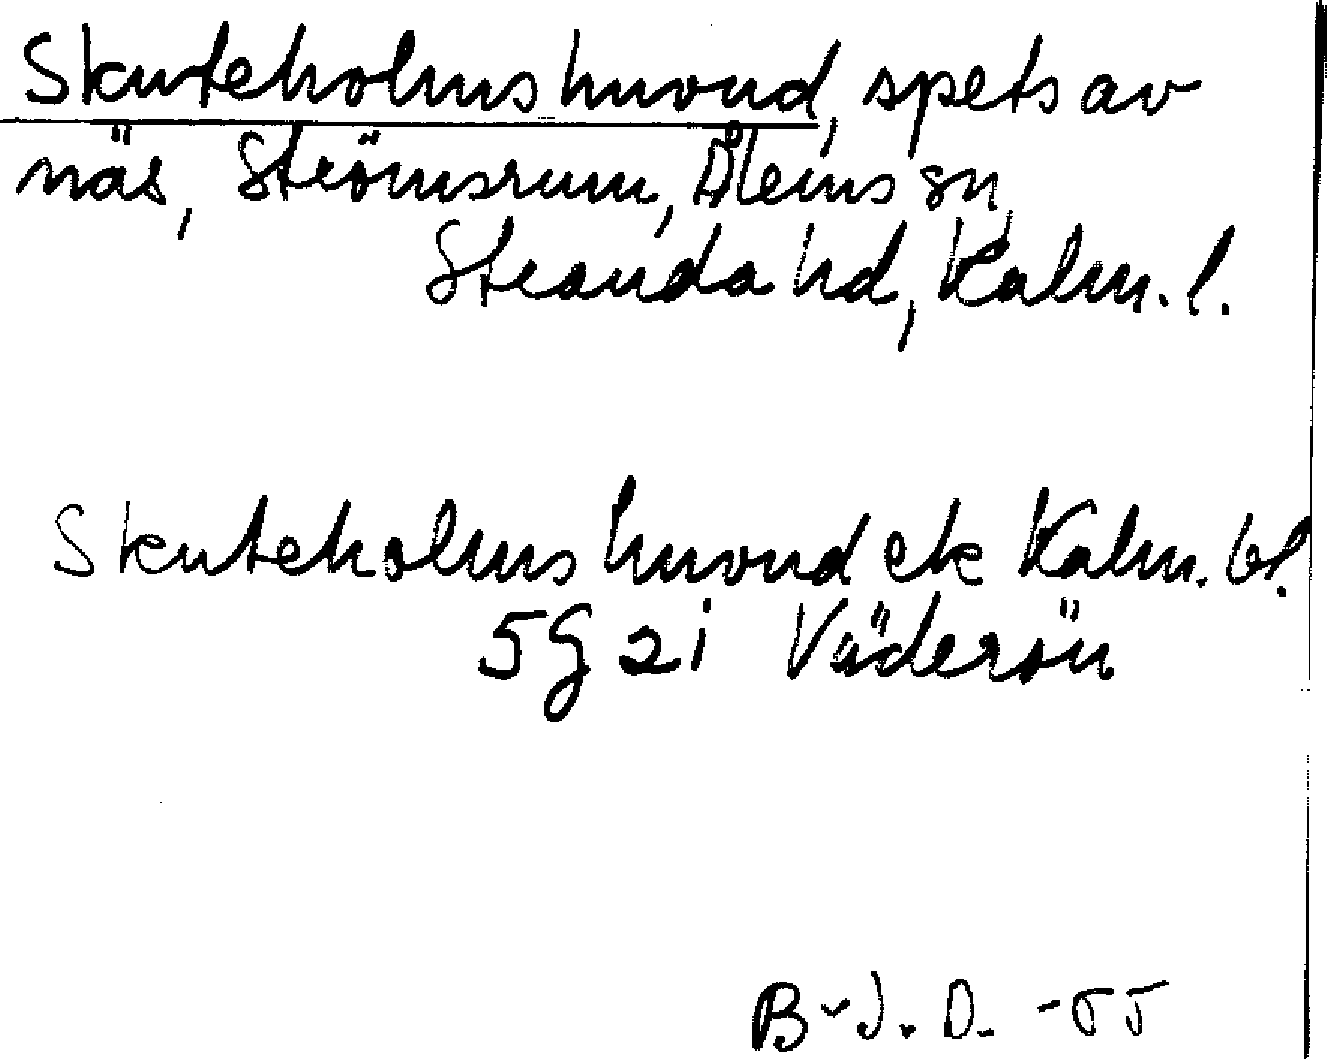 Skuteholmshuvud, spets av
näs, Strömsrum, Ålems sn,
Stranda hd, Kalm. l.
Skuteholms huvud ek Kalm. bl.
5G 2i Väderön
B-J. D. -55